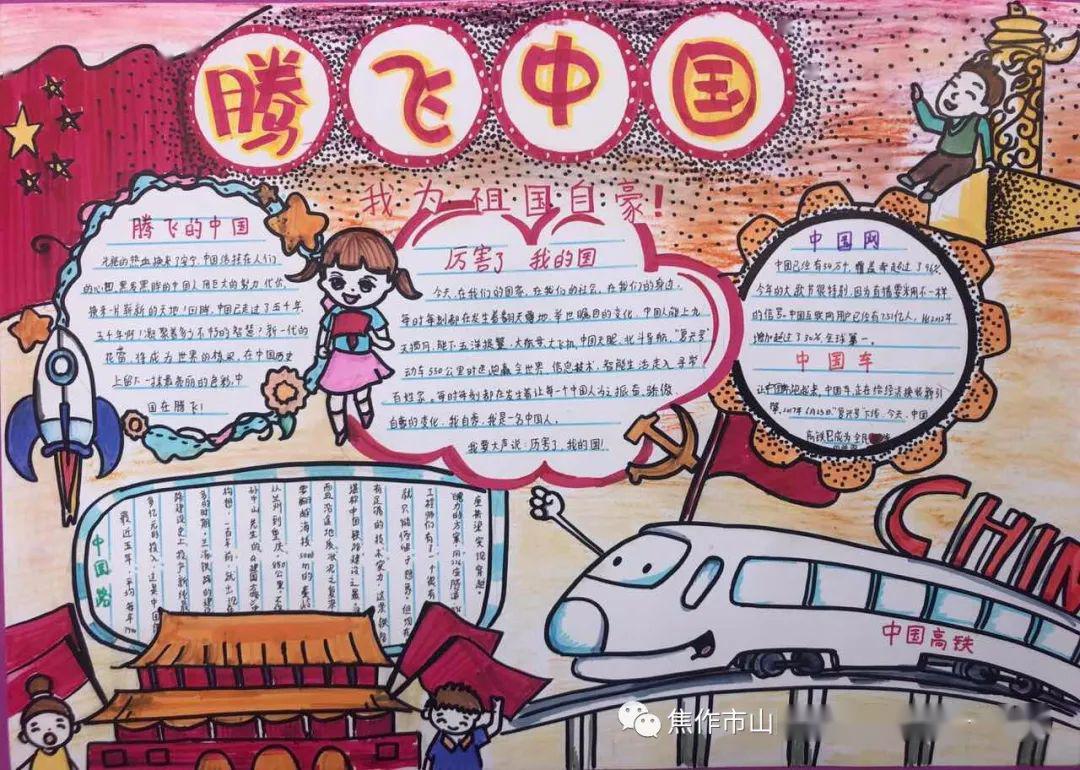 腾飞中国
我为祖国自豪!
腾飞的中国
先驱的热血换来了安宁,中国传扶在人们
的心里,黑发黑眸的中国人用巨大的努力代价,
换来一片崭新的天地!回眸,中国已走过了五千年,
五千年啊!凝聚着多少不朽的智慧?新一代的
花蕾,将成为世界的
在中国历史
上留下一抹最亮丽的色彩,中
国在腾飞!
厉害了 我的国
今天,在我们的国家,在我们的社会,在我们的身边,
每时每刻都在发生着翻天覆地,举世瞩目的变化,中国人能上九
天揽月,能下五洋捉鳖,大航母大飞机,中国天眼,北斗导航,"复兴号"
动车350公里时速跑赢全世界,信息技术,智能生活走入寻常
百姓家。每时每刻都在发生着让每一个中国人为之振奋,骄傲,
自豪的变化,我自豪,我是一名中国人。
我要大声说:厉害了,我的国!
中国网
中国已经有
覆盖率超过了96%
今年的大歌节很特别,因为直播要采用不一样
的信号,中国互联网用户已经有7.51亿人,比2012年
增加超过了30%,全球第一。
中国车
正在给经济换装新引
擎,2017年6月25日,"复兴号"下线,今天,中国
高铁已成为全民
中国路
最近五年,平均每年
多亿元的投入,这是中国
路建设史上投产新线最
多的时期,
构想,一百年前,就出现在
孙中山先生的《建国方略》中
从兰州到重庆,
要翻越海拔
西丘沿途地质
堪称中国铁路建设之最
有足够的技术实力,这条铁路
就只能停留于想象,但现在
工程师们有了一个
魄力的方案,用
座桥梁,实现穿越。
CHIN
中国高铁
焦作市山